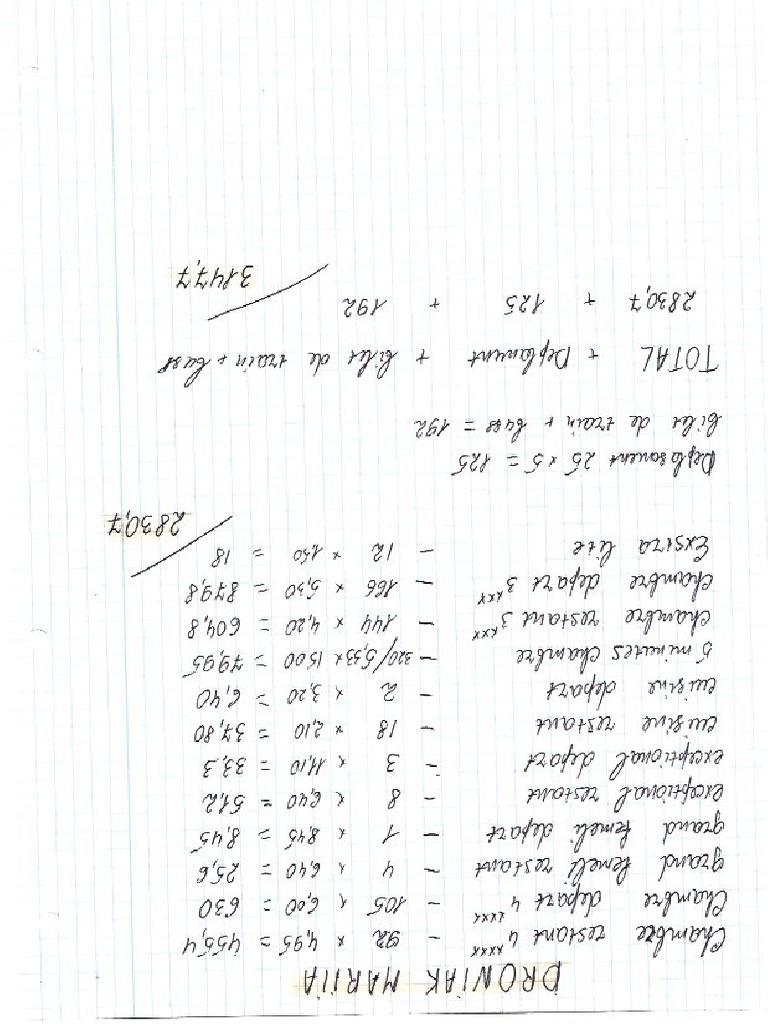 DRONIAK MARIIA
Chambre restant 4**** - 92 x 4,95 = 455,4
Chambre depart 4**** - 105 x 6,00 = 630
grand femeli restant - 4 x 6,40 = 25,6
grand femeli depart - 1 x 8,45 = 8,45
exceptional restant - 8 x 6,40 = 51,2
exceptional depart - 3 x 11,10 = 33,3
cuisine restant - 18 x 2,10 = 37,80
cuisine depart - 2 x 3,20 = 6,40
5 minutes chambre - 320/5,33 x 1500 = 79,95
chambre restant 3*** - 144 x 4,20 = 604,8
chambre depart 3*** - 166 x 5,30 = 879,8
Exstra lite - 12 x 1,50 = 18
2830,7
Deplasoment 25 x 5 = 125
bilet de train + buss = 192
TOTAL + Deplament + bilet de train + buss
2830,7 + 125 + 192
3147,7